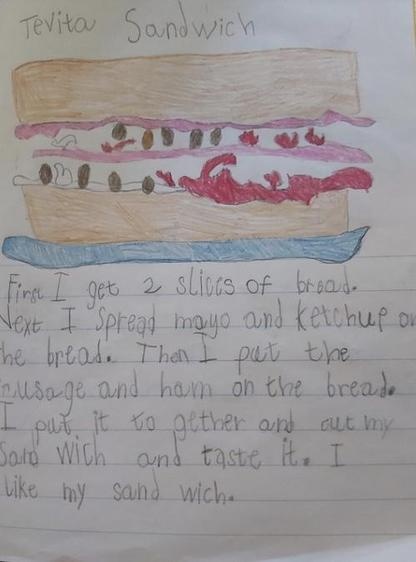 Tevita Sandwich
First I get 2 slices of bread.
Next I spread mayo and ketchup on
the bread. Then I put the
sausage and ham on the bread.
I put it to gether and cut my
Sand wich and taste it. I
like my sand wich.